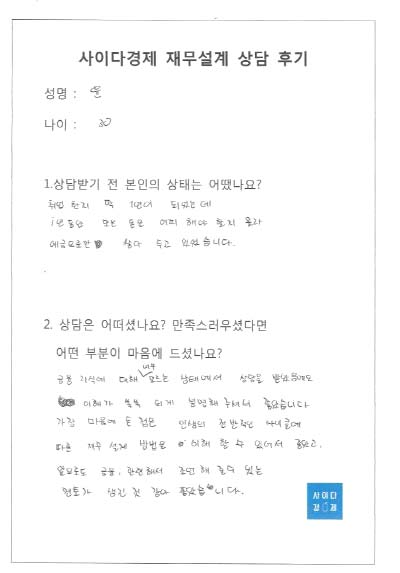 사이다경제 재무설계 상담 후기
성명 :
나이 : 30
1.상담받기 전 본인의 상태는 어땠나요?
취업 한지 딱 1년이 되었는데
1년동안 모은 돈은 어찌 해야 할지 몰라
예금으로만 쌓아 두고 있었습니다.
2. 상담은 어떠셨나요? 만족스러우셨다면
어떤 부분이 마음에 드셨나요?
금융 지식에 대해 너무 모르는 상태에서 상담을 받았음에도
이해가 쏙쏙 되게 설명해 주셔서 좋았습니다
가장 마음에 든 점은 인생의 전반적인 사이클에
따른 재무 설계 방법을 이해 할 수 있어서 좋았고,
앞으로도 금융 관련해서 조언 해 줄수 있는
멘토가 생긴 것 같아 좋았습니다.
사이다
경제